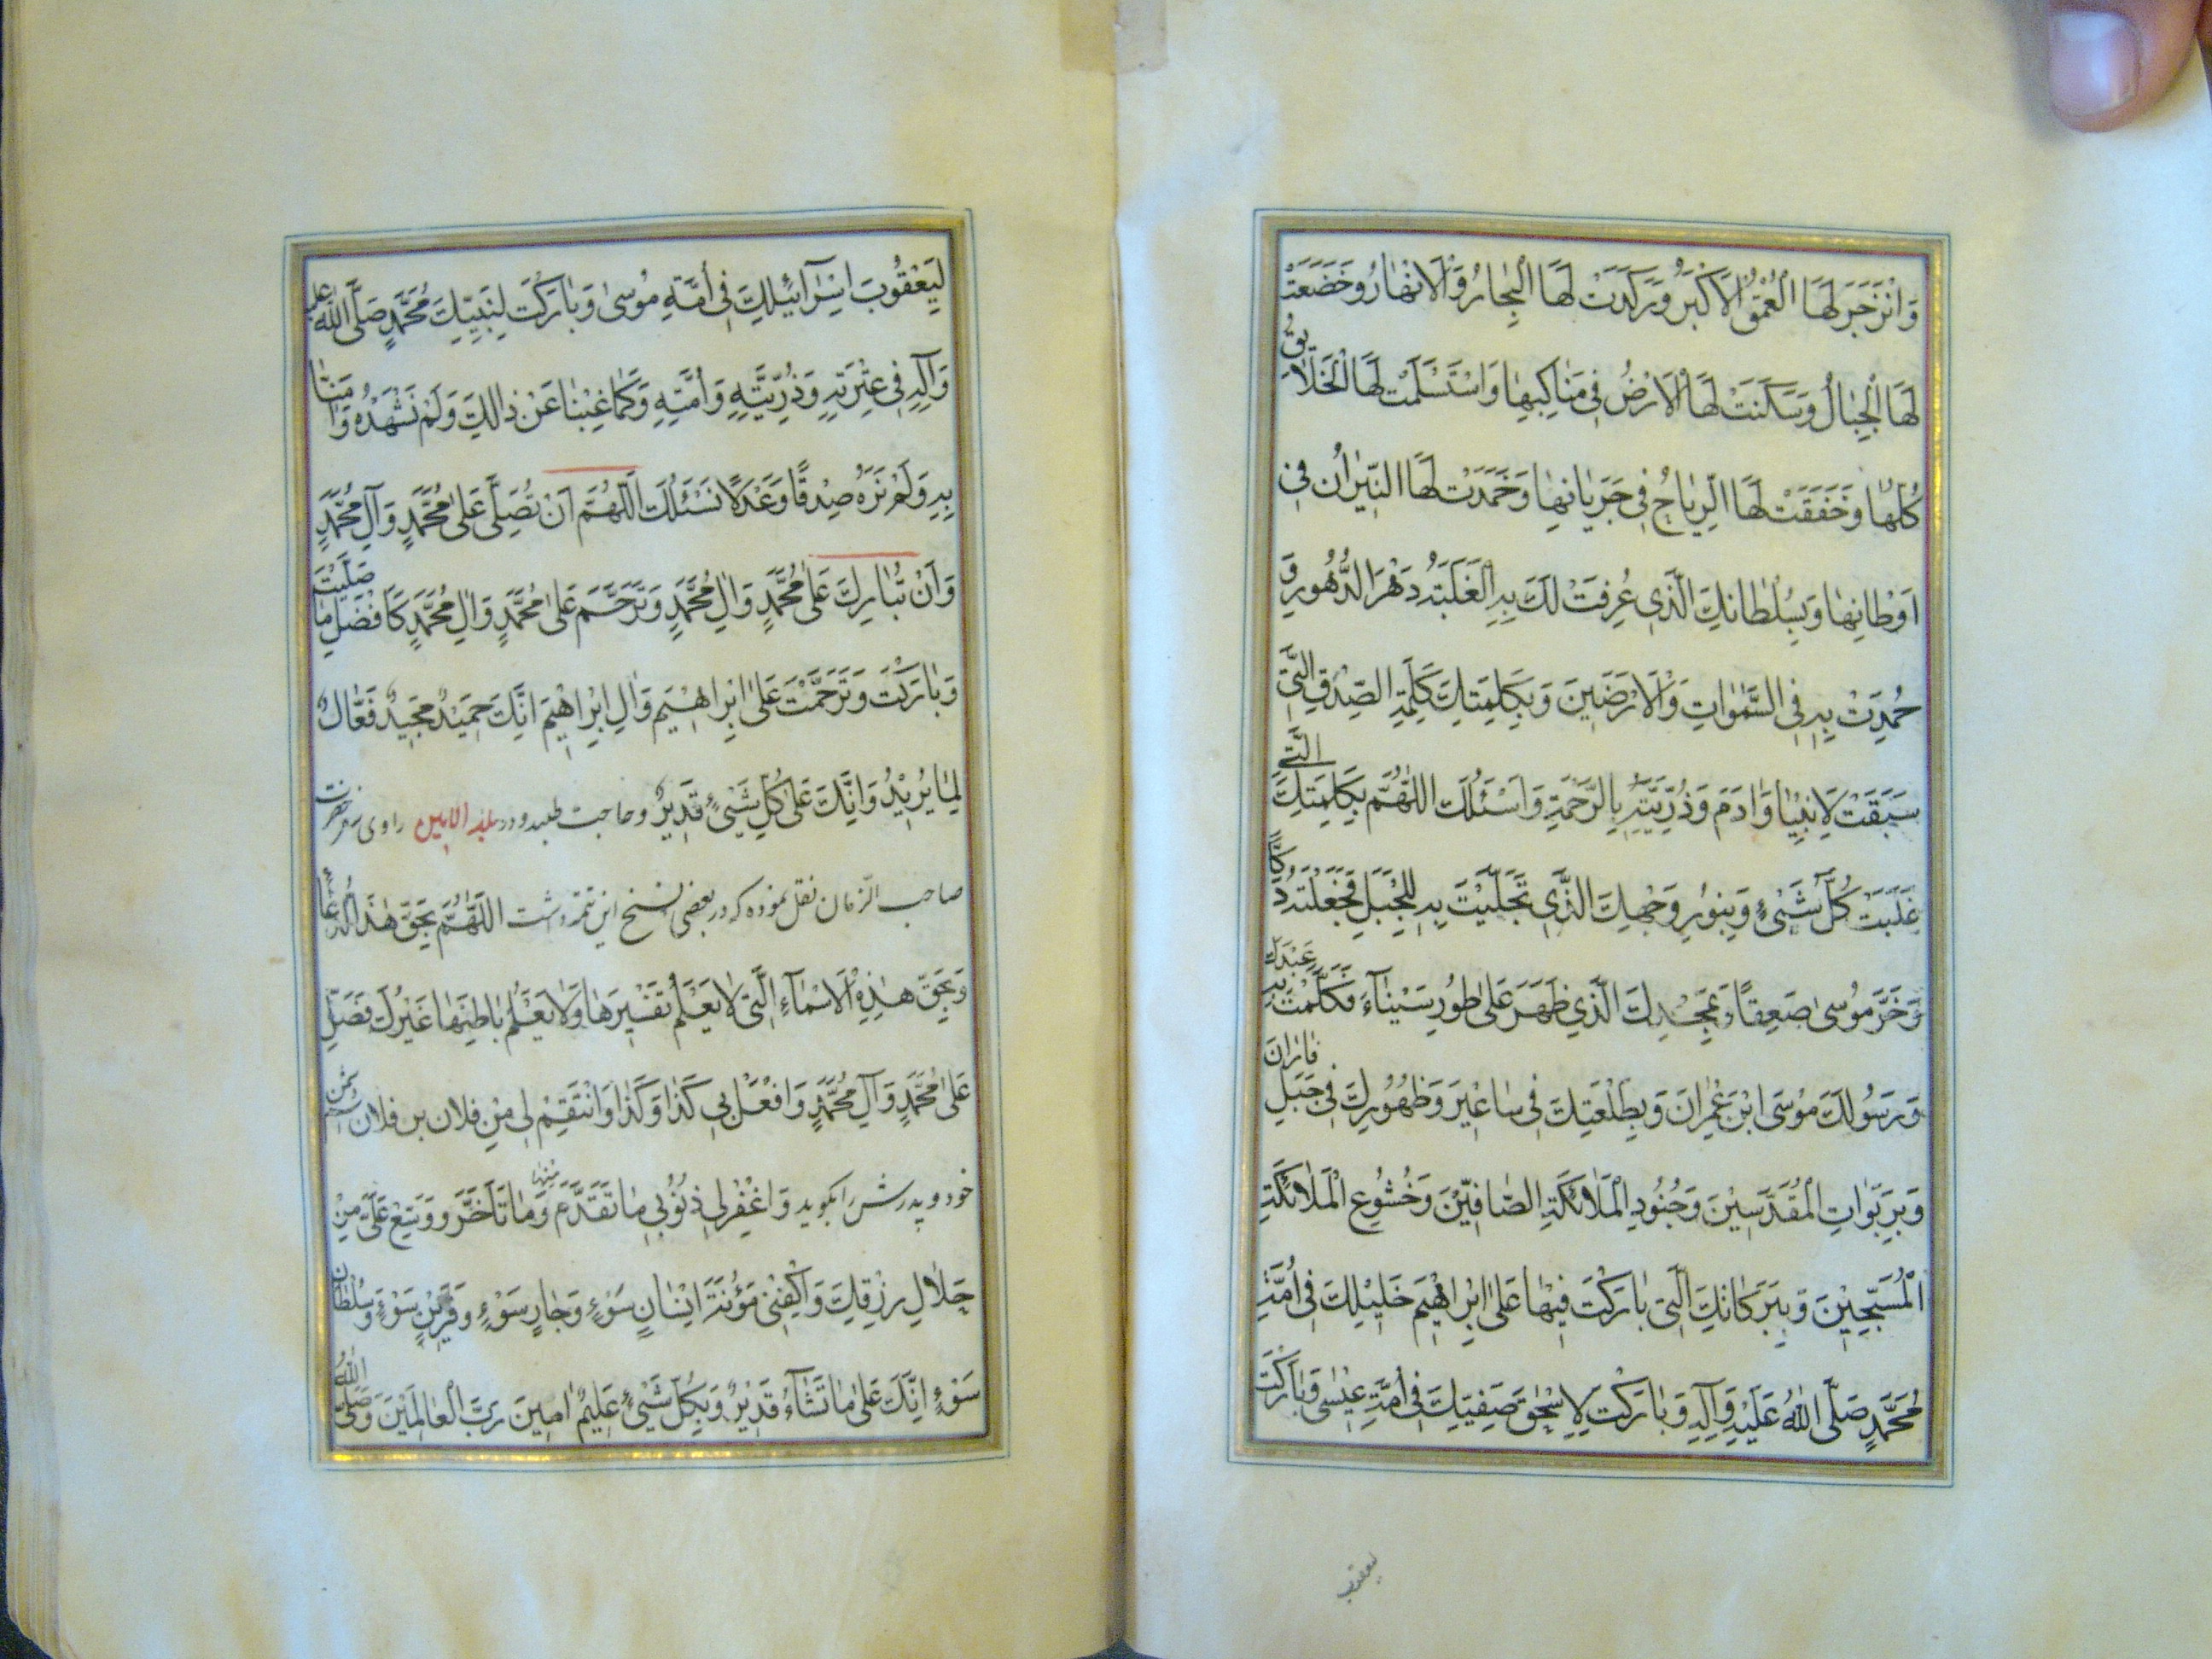 وَانْزَجَرَ لَهَا الْعُمْقُ الْاَكْبَرُ وَرَكَدَتْ لَهَا الْبِحَارُ وَالْاَنْهَارُ وَخَضَعَتْ
لَهَا الْجِبَالُ وَسَكَنَتْ لَهَا الْاَرْضُ فِي مَنَاكِبِهَا وَاسْتَسْلَمَتْ لَهَا الْخَلَايِقُ
كُلُّهَا وَخَفَقَتْ لَهَا الرِّيَاحُ فِي جَرَيَانِهَا وَخَمَدَتْ لَهَا النِّيرَانُ فِي
اَوْطَانِهَا وَبِسُلْطَانِكَ الَّذِي عُرِفَتْ لَكَ بِهِ الْغَلَبَةُ دَهْرَ الدُّهُورِ وَ
حُمِدَتْ بِهِ فِي السَّمٰوَاتِ وَالْاَرَضَينَ وَبِكَلِمَتِكَ كَلِمَةِ الصِّدْقِ الَّتِي
سَبَقَتْ لِاَبِينَا وَادَمَ وَذُرِّيَّتِهِ بِالرَّحْمَةِ وَاَسْئَلُكَ اللّٰهُمَّ بِكَلِمَتِكَ الَّتِي
غَلَبَتْ كُلَّ شَيْءٍ وَبِنُورِ وَجْهِكَ الَّذِي تَجَلَّيْتَ بِهِ لِلْجَبَلِ فَجَعَلْتَهُ دَكًّا
وَخَرَّ مُوسٰى صَعِقًا وَبِمَجْدِكَ الَّذِي ظَهَرَ عَلٰى طُورِ سَيْنَآءَ فَكَلَّمْتَ بِهِ عَبْدَكَ
وَرَسُولَكَ مُوسَى ابْنَ عِمْرَانَ وَبِطَلْعَتِكَ فِي سَاعِيرَ وَظُهُورِكَ فِي جَبَلِ فَارَانَ
وَبِرَبَوَاتِ الْمُقَدَّسِينَ وَجُنُودِ الْمَلَائِكَةِ الصَّافِّينَ وَخُشُوعِ الْمَلَائِكَةِ
الْمُسَبِّحِينَ وَبِبَرَكَاتِكَ الَّتِي بَارَكْتَ فِيهَا عَلٰى اِبْرَاهِيمَ خَلِيلِكَ فِي اُمَّةِ
مُحَمَّدٍ صَلَّى اللّٰهُ عَلَيْهِ وَآلِهِ وَبَارَكْتَ لِاِسْحٰقَ صَفِيِّكَ فِي اُمَّةِ عِيسٰى وَبَارَكْتَ
ليعقوب
لِيَعْقُوبَ اِسْرَآئِيلِكَ فِي اُمَّةِ مُوسٰى وَبَارَكْتَ لِنَبِيِّكَ مُحَمَّدٍ صَلَّى اللّٰهُ عَلَيْهِ
وَآلِهِ فِي عِتْرَتِهِ وَذُرِّيَّتِهِ وَاُمَّتِهِ وَكَمَا غِبْنَا عَنْ ذٰلِكَ وَلَمْ نَشْهَدْهُ وَامَنَّا
بِهِ وَلَمْ نَرَهُ صِدْقًا وَعَدْلًا نَسْئَلُكَ اللّٰهُمَّ اَنْ تُصَلِّيَ عَلٰى مُحَمَّدٍ وَآلِ مُحَمَّدٍ
وَاَنْ تُبَارِكَ عَلٰى مُحَمَّدٍ وَالِ مُحَمَّدٍ وَتَرَحَّمَ عَلٰى مُحَمَّدٍ وَالِ مُحَمَّدٍ كَاَفْضَلِ مَا صَلَّيْتَ
وَبَارَكْتَ وَتَرَحَّمْتَ عَلٰى اِبْرَاهِيمَ وَالِ اِبْرَاهِيمَ اِنَّكَ حَمِيدٌ مَجِيدٌ فَعَّالٌ
لِمَا يُرِيدُ وَاِنَّكَ عَلٰى كُلِّ شَيْءٍ قَدِيرٌ و حاجت طلبد و در بلد الامين راوى از حضرت
صاحب الزمان نقل نموده كه در بعضى نسخ اين تتمه داشت اَللّٰهُمَّ بِحَقِّ هٰذَا الدُّعَآءِ
وَبِحَقِّ هٰذِهِ الْاَسْمَآءِ الَّتِي لَا يَعْلَمُ تَفْسِيرَهَا وَلَا يَعْلَمُ بَاطِنَهَا غَيْرُكَ فَصَلِّ
عَلٰى مُحَمَّدٍ وَآلِ مُحَمَّدٍ وَافْعَلْ بِي كَذَا وَكَذَا وَانْتَقِمْ لِي مِنْ فلان بن فلان
خود و پدرش را بگويد وَاغْفِرْ لِي ذُنُوبِي مَا تَقَدَّمَ مِنْهَا وَمَا تَاَخَّرَ وَوَسِّعْ عَلَيَّ مِنْ
حَلَالِ رِزْقِكَ وَاكْفِنِي مَؤُنَةَ اِنْسَانٍ سَوْءٍ وَجَارِ سَوْءٍ وَقَرِينِ سَوْءٍ وَسُلْطَانِ
سَوْءٍ اِنَّكَ عَلٰى مَا تَشَآءُ قَدِيرٌ وَبِكُلِّ شَيْءٍ عَلِيمٌ امِينَ رَبَّ الْعَالَمِينَ وَصَلَّى اللّٰهُ